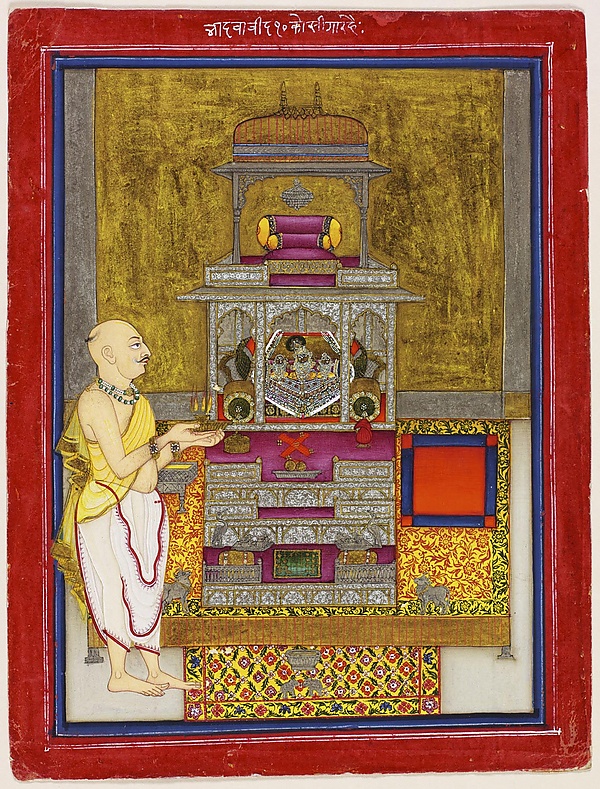 भादवा वीद १० को सीगार